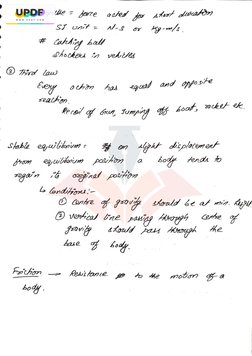 UPDF
www.updf.com
lse = force acted for short duration
SI unit = N-S or kg-m/s.
# Catching ball
shockers in vehicles
③ Third law
Every action has equal and opposite
reaction.
Recoil of Gun, Jumping off boat, rocket etc.
Stable equilibrium: on slight displacement
from equilibrium position a body tends to
regain its original position
↳ Conditions:-
① Centre of gravity should be at min. height
② vertical line passing through centre of
gravity should pass through the
base of body.
Friction → Resistance to the motion of a
body.